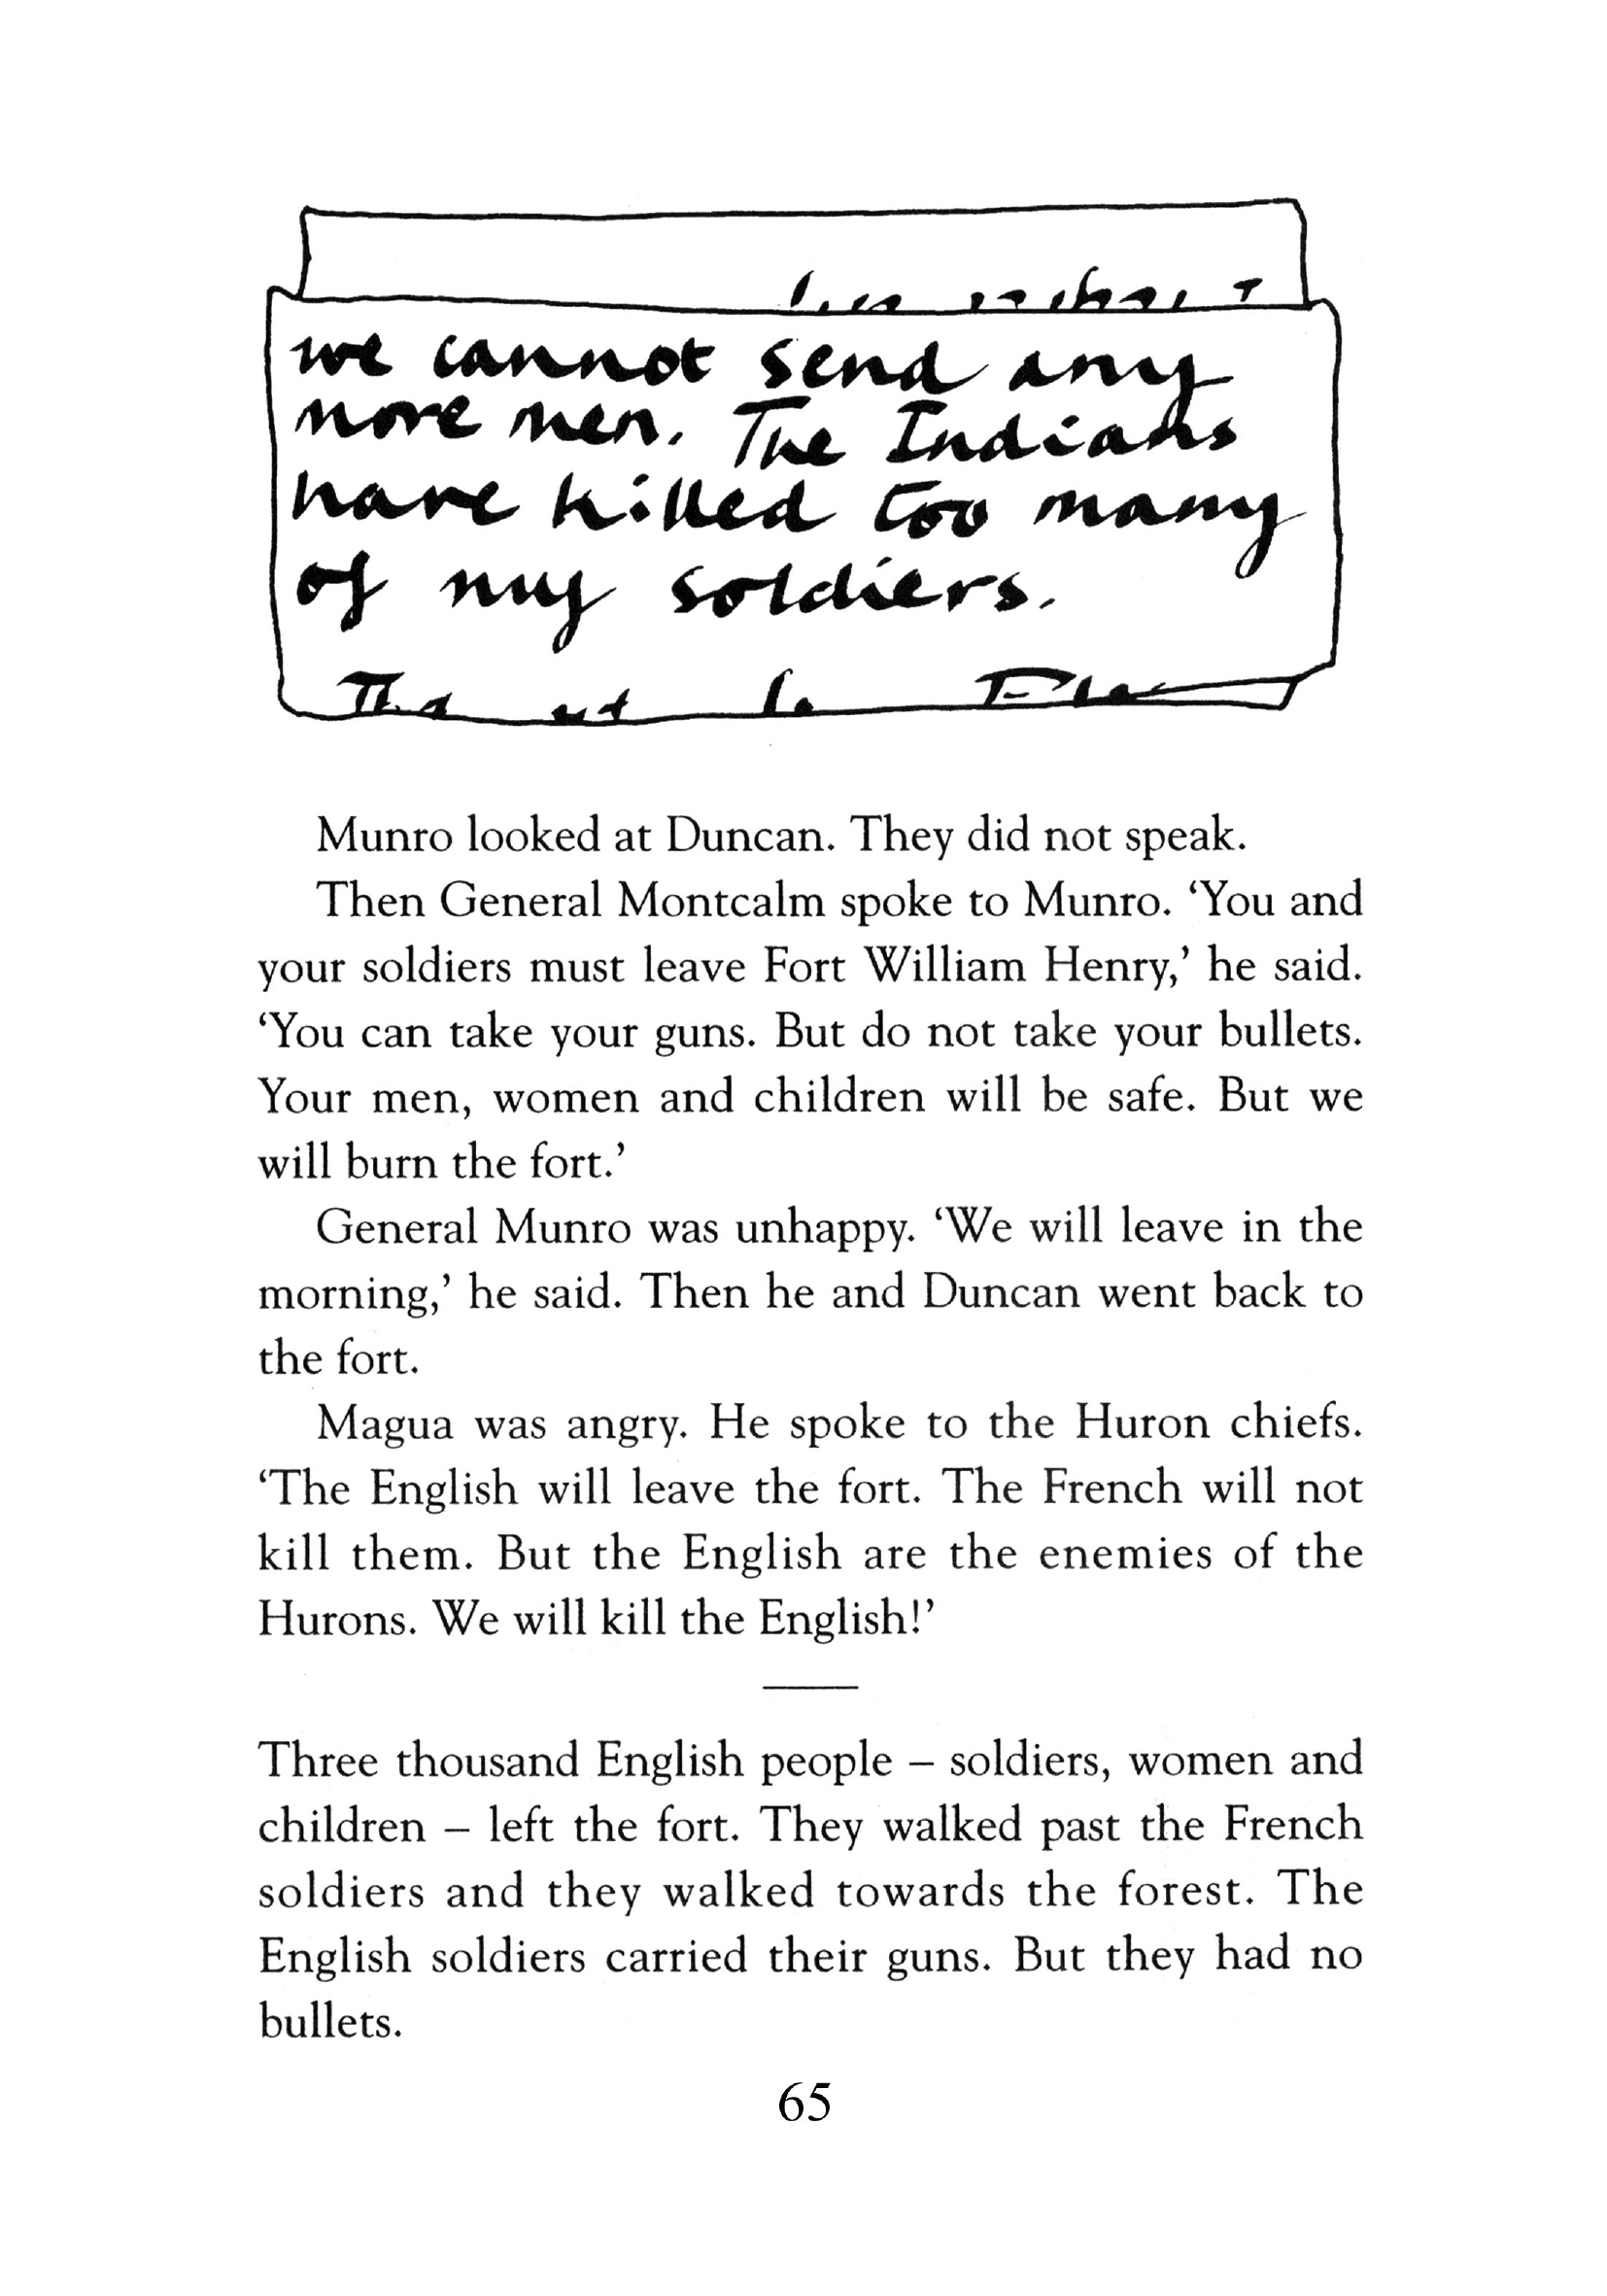 we cannot send any
more men. The Indians
have killed too many
of my soldiers.
Munro looked at Duncan. They did not speak.
Then General Montcalm spoke to Munro. ‘You and
your soldiers must leave Fort William Henry,’ he said.
‘You can take your guns. But do not take your bullets.
Your men, women and children will be safe. But we
will burn the fort.’
General Munro was unhappy. ‘We will leave in the
morning,’ he said. Then he and Duncan went back to
the fort.
Magua was angry. He spoke to the Huron chiefs.
‘The English will leave the fort. The French will not
kill them. But the English are the enemies of the
Hurons. We will kill the English!’
Three thousand English people – soldiers, women and
children – left the fort. They walked past the French
soldiers and they walked towards the forest. The
English soldiers carried their guns. But they had no
bullets.
65